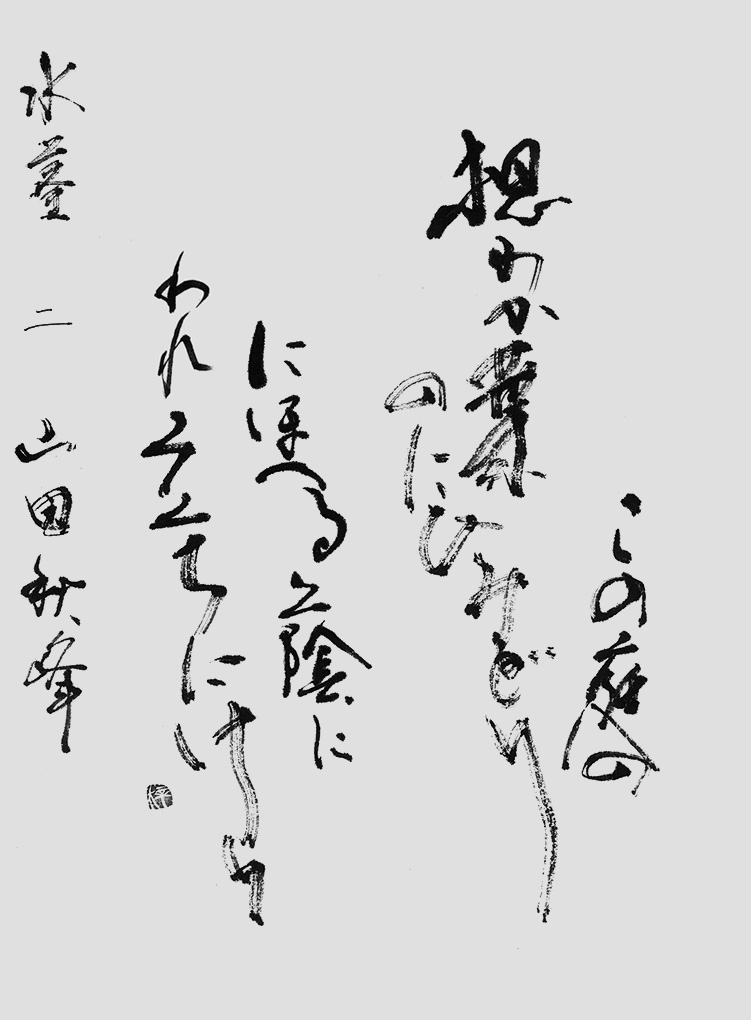 この庭の
わか葉のにひみどり
にほへる蔭に
われ立ちにけり
水莖 二 山田秋峰